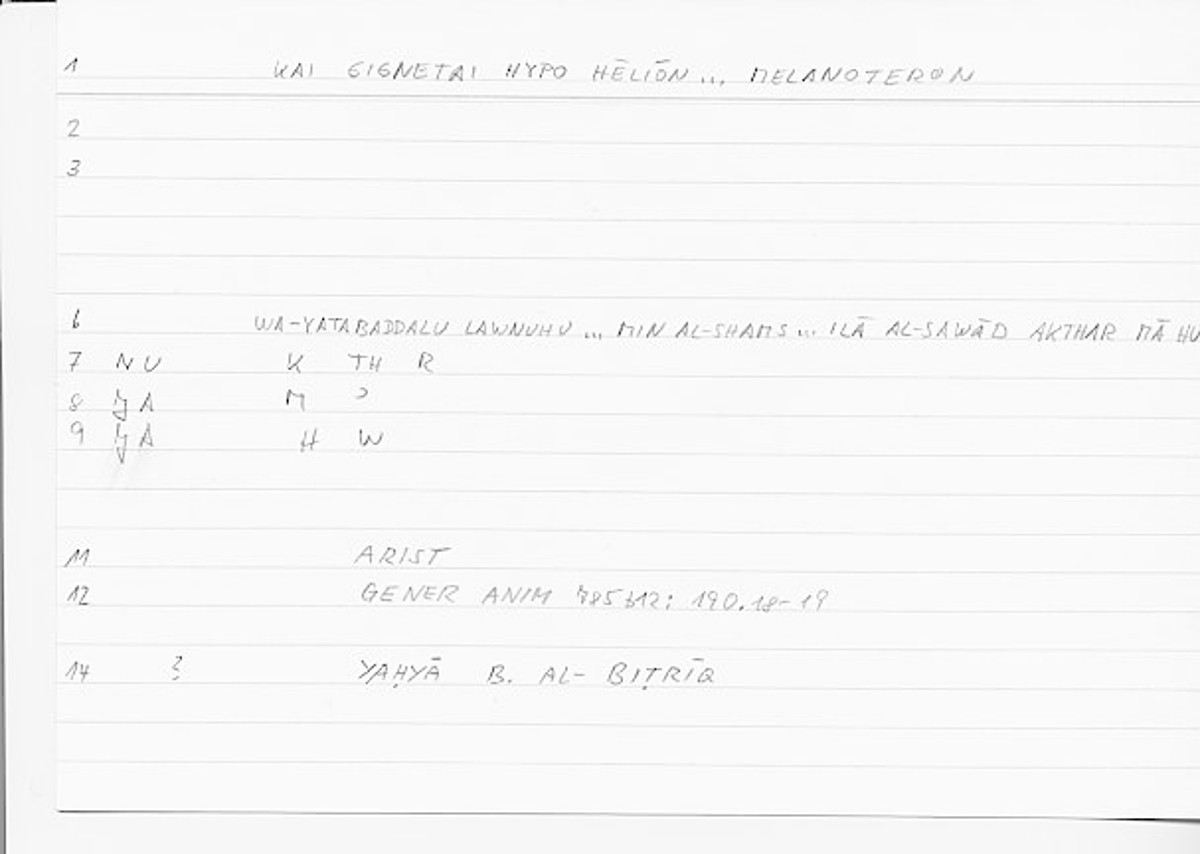 1 KAI GIGNETAI HYPO HĒLIŌN... MELANOTERON
2
3
6 WA-YATABADDALU LAWNUHU ... MIN AL-SHAMS... ILĀ AL-SAWĀD AKTHAR MĀ HU
7 NU K TH R
8 JA M ʾ
9 JA H W
11 ARIST
12 GENER ANIM 785b12; 190.18-19
14 ? YAḤYĀ B. AL-BIṬRĪQ